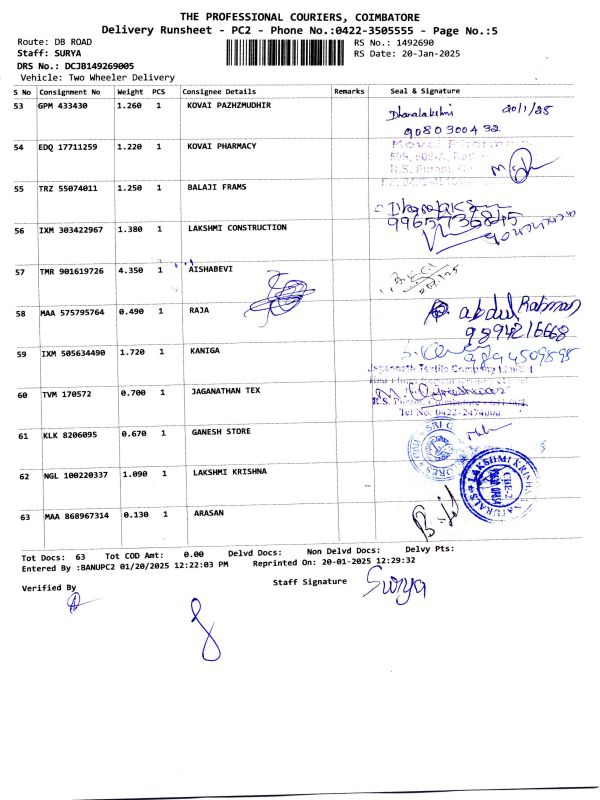 THE PROFESSIONAL COURIERS, COIMBATORE
Delivery Runsheet - PC2 - Phone No.:0422-3505555 - Page No.:5
Route: DB ROAD RS No.: 1492690
Staff: SURYA RS Date: 20-Jan-2025
DRS No.: DCJB149269005
Vehicle: Two Wheeler Delivery
S No Consignment No Weight PCS Consignee Details Remarks Seal & Signature
53 GPM 433430 1.260 1 KOVAI PAZHZMUDHIR Dhanalakshmi 20/1/25
9080300432
54 EDQ 17711259 1.220 1 KOVAI PHARMACY
R.S. Puram
55 TRZ 55074011 1.250 1 BALAJI FRAMS
9965736845
56 IXM 303422967 1.380 1 LAKSHMI CONSTRUCTION
57 TMR 901619726 4.350 1 AISHABEVI
58 MAA 575795764 0.490 1 RAJA abdul Rahman
9894216668
59 IXM 505634490 1.720 1 KANIGA
Jagannath Textile Company Limited
60 TVM 170572 0.700 1 JAGANATHAN TEX
R.S. Puram, Coimbatore
Tel No: 0422-2474000
61 KLK 8206095 0.670 1 GANESH STORE
SRI G
62 NGL 100220337 1.090 1 LAKSHMI KRISHNA
LAKSHMI KRISHNA NATURALS
CBE-2
63 MAA 868967314 0.130 1 ARASAN
Tot Docs: 63 Tot COD Amt: 0.00 Delvd Docs: Non Delvd Docs: Delvy Pts:
Entered By :BANUPC2 01/20/2025 12:22:03 PM Reprinted On: 20-01-2025 12:29:32
Verified By Staff Signature Surya